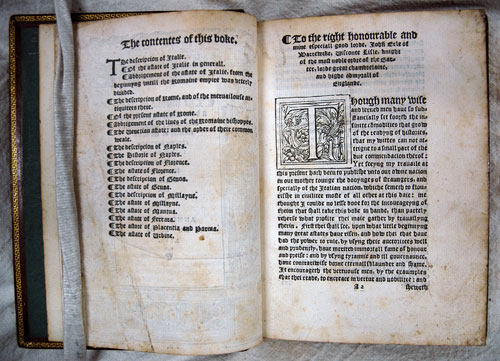 The contentes of this boke.
The description of Italie.
Of the astate of Italie in generall.
Abbridgement of the astate of Italie, from the
beginnyng untill the Romaine empire was utterly
divided.
The description of Rome, and of the mervailouse an-
tiquitees there.
Of the present astate of Rome.
Abbridgement of the lives of the Romaine bishoppes.
The Venetian astate: and the order of their common
weale.
The description of Naples.
The Historie of Naples.
The description of Florence.
The astate of Florence.
The description of Genoa.
The astate of Genoa.
The description of Myllayne.
The astate of Myllayne.
The astate of Mantua.
The astate of Ferrara.
The astate of Placentia and Parma.
The astate of Urbine.
To the right honourable and
mine especiall good lorde, John Erle of
Warwike, Viscount Lisle, knight
of the most noble ordre of the Gar-
ter, lorde great chamberlaine,
and highe admyrall of
Englande.
Though many wise
and lerned men have so sub-
stancially set foorth the in-
finite commodities that grow
of the readyng of histories,
that my wittes can not at-
teigne to a small part of the
due commendacion therof:
Yet seeyng my travaile at
this present hath been to publishe unto our owne nacion
in our mother tounge the dooynges of straungers, and
specially of the Italian nacion, which semeth to flou-
rishe in civilitee moste of all other at this date: me
thought I coulde no lesse doe for the encourageyng of
theim that shall take this boke in hande, than partely
reherse what profite thei maie gather by travailyng
therin. First thei shall see, upon what little begynnyng
many great astates have risen, and how thei that have
had the power to rule, by usyng their auctoritees well
and prudently, have merited immortall fame of honour
and preise: and by usyng tyrannie and ill governaunce,
have contrariwise borne eternall sklaunder and shame.
It encourageth the vertuouse men, by the exaumples
that thei reade, to encrease in vertue and nobilitee: and
A 2 sheweth